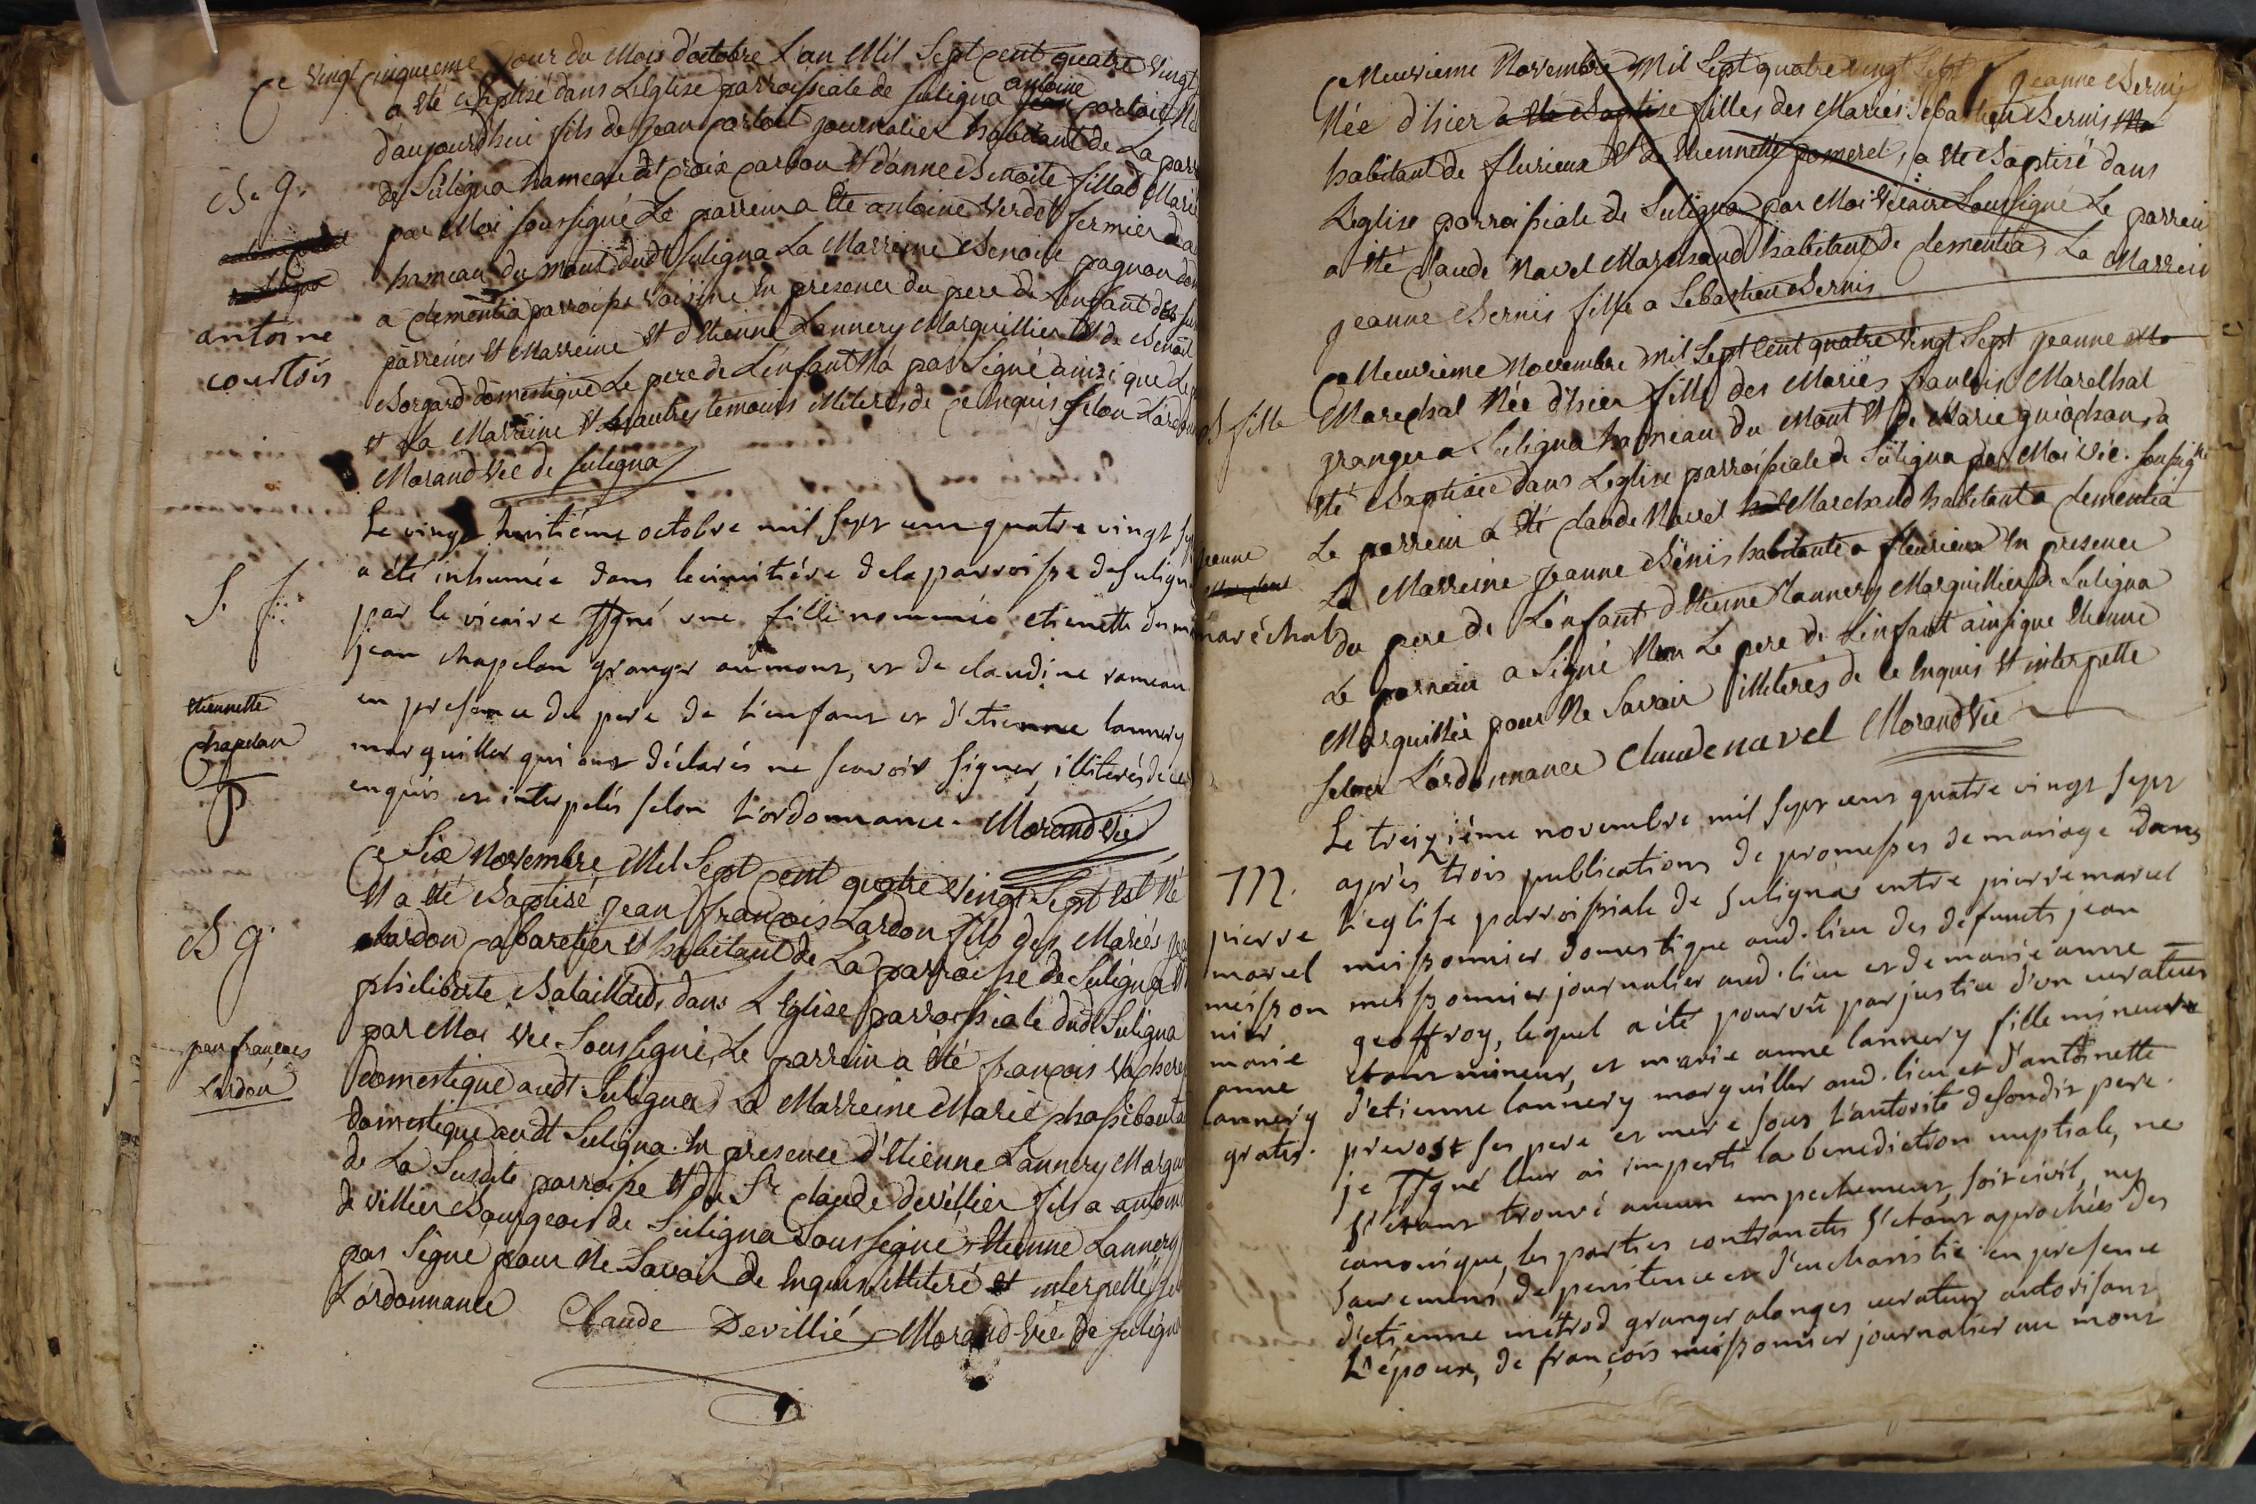 Ce vingt cinquieme jour du Mois d'octobre L'an Mil Sept Cent quatre vingt
a été Baptisé dans L'Eglise parroissiale de Suligna antoine
d'aujourdhui fils de Jean journalier habitant de La parr
de Suligna hameau dit Croix carbon Et d'anne Benoite fillad Marié
par Moi soussigné Le parrein a Eté antoine Verdet fermier
hameau du mont dudt Suligna La Marreine Benoite pagnon
a Clementia parroisse Voisine En presence du pere de L'enfant des
parreins Et Marreine Et d'Etienne Lannery Marguillier Et de Benoit
Borgard domestique Le pere de L'enfant N'a pas Signé ainsi que Le
et La Marreine Et autres temoins illiterés de Ce Enquis selon
Morand Vic de Suligna
B. g.
antoine
courtois
Le vingt huitiéme octobre mil sept cent quatre vingt
a été inhumée dans le cimitiére de la parroisse de Suligna
par le vicaire sssgné une fille nommée etienette
jean chapelan granger au mont, et de claudine rameau
en presence du pere de l'enfant et d'etienne lannery
marguiller qui ont déclarés ne scavoir signer, illiterés de ce
enquis et interpelés selon L'ordonnance. Morand Vic
S. f.
etiennette
Chapelan
P
Ce Six Novembre Mil Sept Cent quatre Vingt Sept Est Né
Et a été Baptisé Jean François Lardon fils des Mariés
Lardon Cabaretier Et habitant de La parroisse de Suligna Et
philiberte Bataillard, dans L'Eglise parroissiale dudt Suligna
par Moi Vic Soussigné, Le parrein a été françois
domestique audt Suligna La Marreine Marie
domestique audt Suligna En presence d'Etienne Lannery
de La Susdite parroisse Et du Sr Claude devillier fils a
de villier Bourgeois de Suligna Soussigné, Etienne Lannery
pas Signé pour Ne Savoir de Enquis illiteré et interpellé
L'ordonnance Claude Devillié Morand Vic de Suligna
B g.
jean françois
Lardon
Ce Neuvieme Novembre Mil Sept quatre vingt Sept Jeanne Bernis
Née d'hier a été Baptisé filles des Mariés Sebastien Bernis
habitant de flurieux Et de Etiennette pomeret, a été Baptisé dans
L'eglise parroissiale de Suligna par Moi Vicaire Soussigné Le parrein
a été Claude Navel Marchand habitant de Clementia La Marrein
jeanne Bernis fille a Sebastien Bernis
Ce Neuvieme Novembre Mil Sept Cent quatre Vingt Sept Jeanne
Marechal Née d'hier fille des Mariés françois Marechal
granger a Suligna hameau du Mont Et de Marie guichan, a
été Baptisée dans L'eglise parroissiale de Suligna par Moi Vic. soussigné
Le parrein a été Claude Navel Marchand habitant a Clementia
La Marreine Jeanne Bernis habitante a fleurieux En presence
du pere de L'enfant d'Etienne Lannery Marguillier de Suligna
Le parrein a Signé Non Le pere de L'enfant ainsique Etienne
Marguillier pour Ne Savoir illiteres de Ce Enquis Et interpellé
selon L'ordonnance Claude navel Morand Vic
B fille
jeanne
maréchal
Le treiziéme novembre mil sept cent quatre vingt sept
après trois publications de promesses de mariage dans
L'eglise parroissiale de Suligna entre pierre marcel
meissonnier domestique aud. lieu des defuncts jean
meissonnier journalier aud. lieu et de marie anne
geoffroy, lequel a été pourvû par justice d'un curateur
etant mineur, et marie anne lannery fille mineure
d'etienne lannery marguiller aud. lieu et d'antoinette
prevost ses pere et mere sous L'autorité desondit pere.
je sssgné leur ai imparti la benediction nuptiale, ne
s'etant trouvé aucun empechement, soit civil, ny
canonique, les parties contractes s'etant aprochées des
sacremens de penitence et d'eucharistie en presence
d'etienne métrod granger alonges curateur autorisant
L'époux, de françois meissonnier journalier au mont
M.
pierre
marcel
meisson
nier
marie
anne
lannery
gratis.